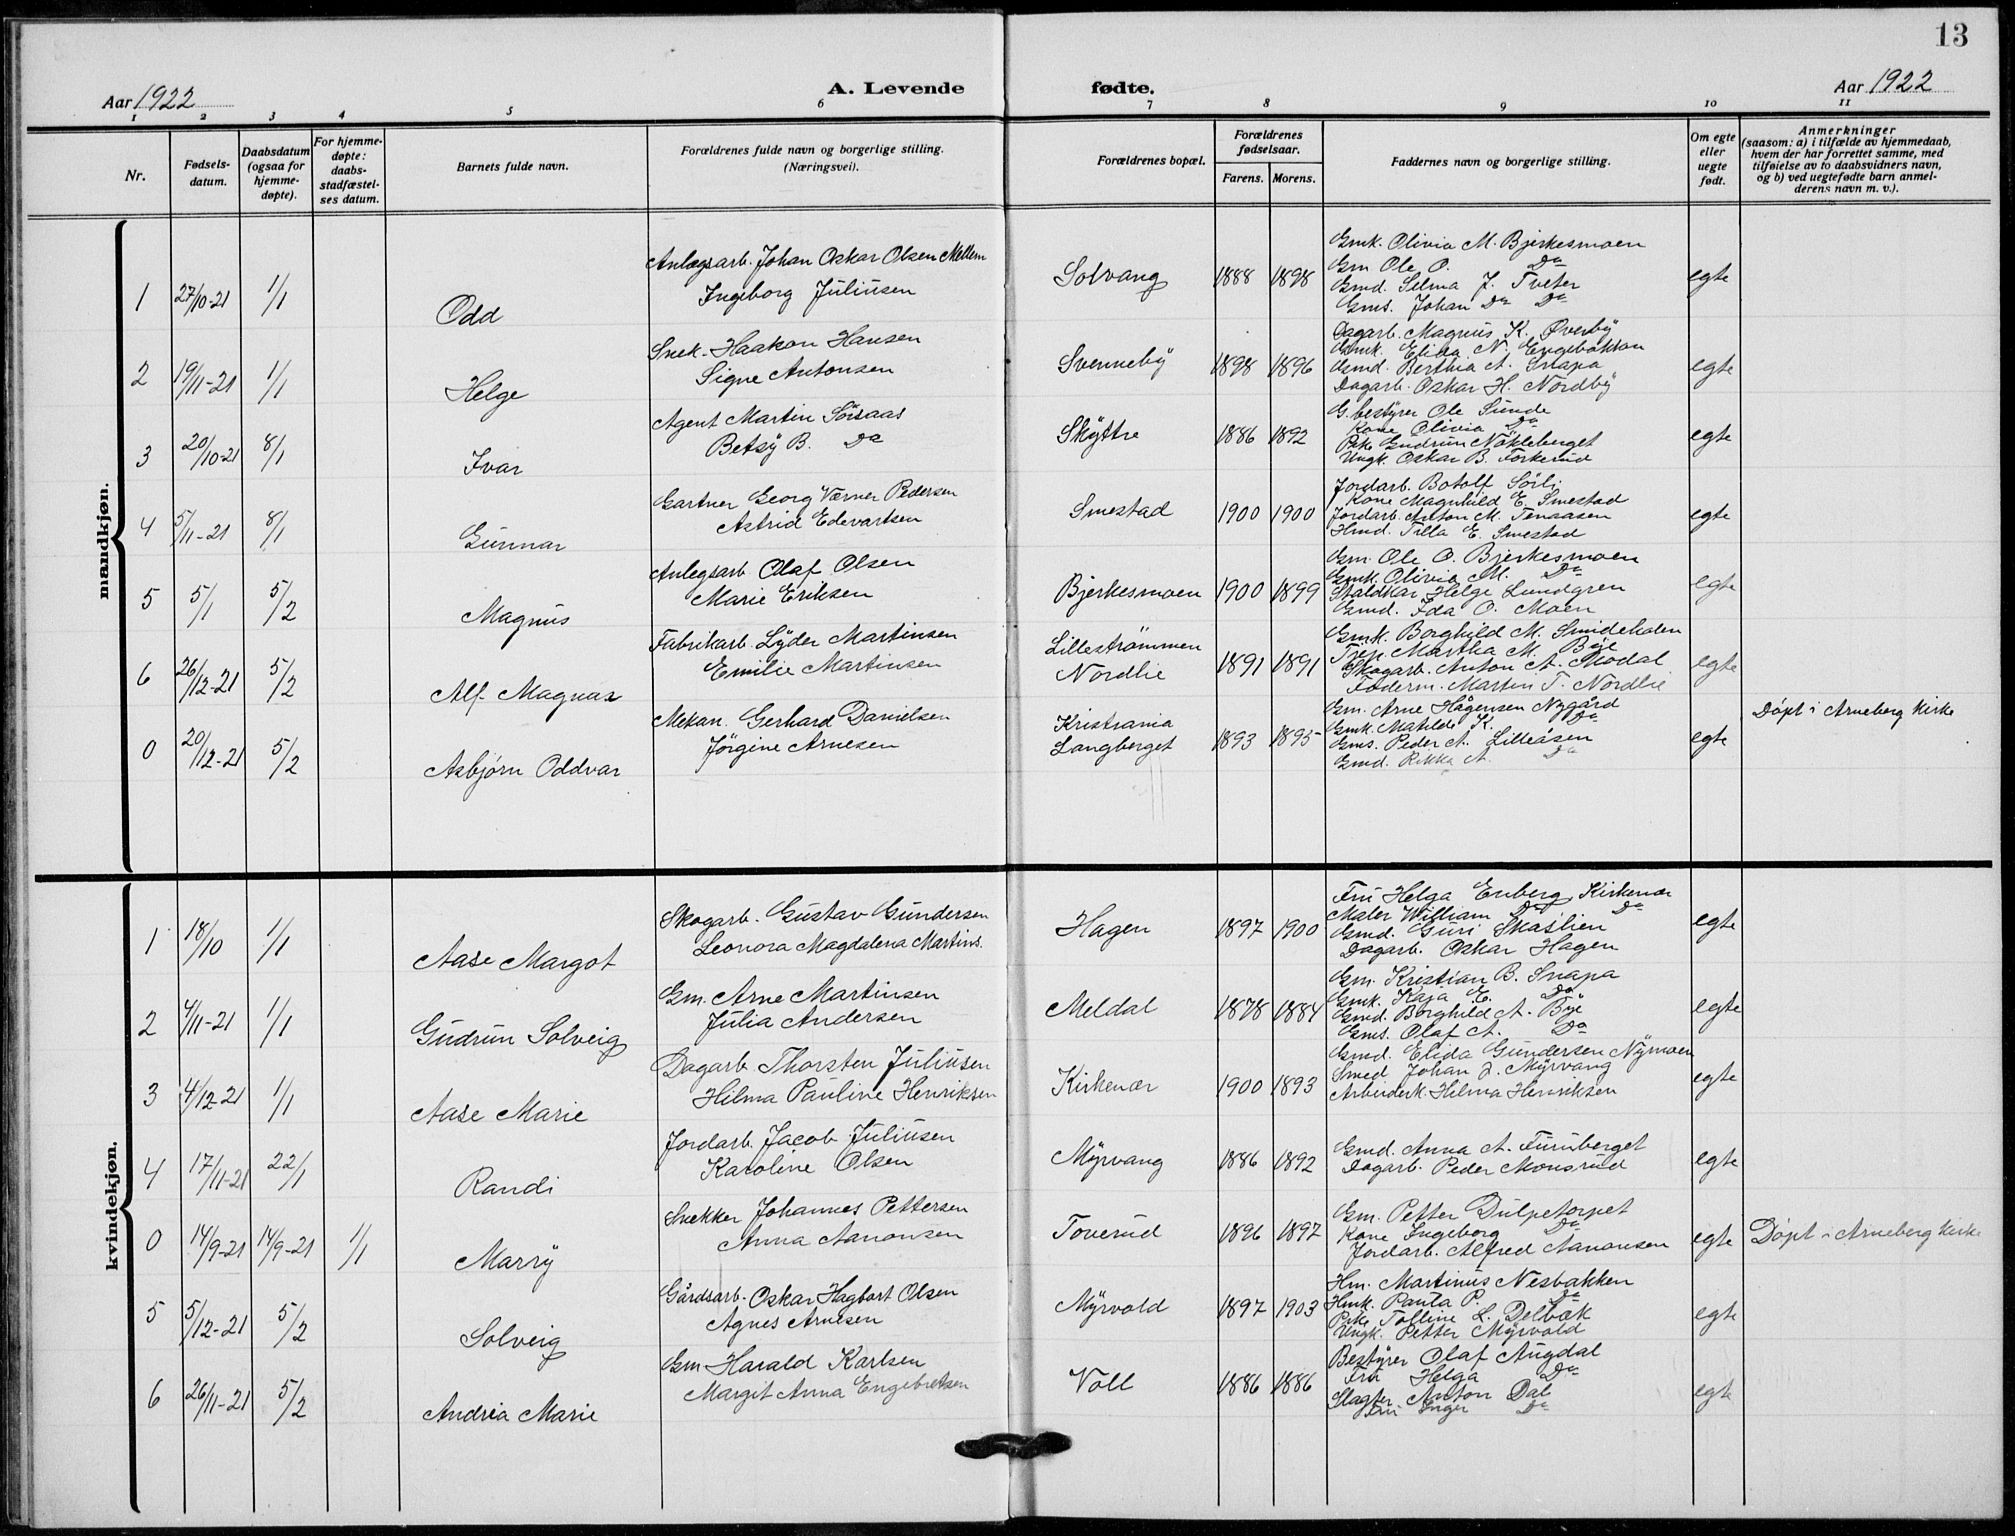 13
Aar 1922 A. Levende fødte. Aar 1922
1 2 3 4 5 6 7 8 9 10 11
Nr. Fødsels-datum. Daabsdatum (ogsaa for hjemme-døpte). For hjemme-døpte: daabs-stadfæstel-ses datum. Barnets fulde navn. Forældrenes fulde navn og borgerlige stilling. (Næringsvei). Forældrenes bopæl. Forældrenes fødselsaar. Farens. Morens. Faddernes navn og borgerlige stilling. Om egte eller uegte født. Anmerkninger (saasom: a) i tilfælde av hjemmedaab, hvem der har forrettet samme, med tilføielse av to daabsvidners navn, og b) ved uegtefødte barn anmel-derens navn m. v.).
mandkjøn.
1 27/10-21 1/1 Odd
Anlægsarb. Johan Oskar Olsen Mellem
Ingeborg Juliusen
Solvang 1888 1898
Gmk. Olivia M. Bjerkesmoen
Gm Ole O. Do
Gmd. Selma J. Tveter
Gms. Johan Do Do
egte
2 19/11-21 1/1 Helge
Snek. Haakon Hansen
Signe Antonsen
Svenneby 1898 1896
Dagarb. Magnus K. Øverby
Gmk. Elida N. Engebakken
Gmd. Berthea A. Snapa
Dagarb. Oskar H. Nordby
egte
3 20/10-21 8/1 Ivar
Agent Martin Sörsaas
Betsy B. Do
Skyttre 1886 1892
G.bestyrer Ole Sunde
Kone Olivia Do
Pike Gudrun Nökleberget
Ungk. Oskar B. Torkerud
egte
4 5/11-21 8/1 Gunnar
Gartner Georg Værner Pedersen
Astrid Edevartsen
Smestad 1900 1900
Jordarb. Botolf Sörli
Kone Magnhild E. Smestad
Jordarb. Anton M. Tenaasen
Hmd. Tilla E. Smestad
egte
5 5/1 5/2 Magnus
Anlegsarb Olaf Olsen
Marie Eriksen
Bjerkesmoen 1900 1899
Gm. Ole O. Bjerkesmoen
Gmk. Olivia M. Do
Staldkar Helge Lundgren
Gmd. Ida O. Moen
egte
6 26/12-21 5/2 Alf Magnus
Fabrikarb. Lyder Martinsen
Emilie Martinsen
Lillestrømmen
Nordlie 1891 1891
Gmk. Borghild M. Smidehalen
Tjep. Martha M. Bye
Skogarb. Anton A. Modal
Foderm. Martin T. Nordlie
egte
0 20/12-21 5/2 Asbjørn Oddvar
Mekan. Gerhard Danielsen
Jörgine Arnesen
Kristiania
Langberget 1893 1895
Gm. Arne Hågensen Nygård
Gmk. Matilde K. Do
Gms. Peder A. Lilleåsen
Gmd. Rikka A. Do
egte Döpt i Arneberg kirke
kvindekjøn.
1 18/10 1/1 Aase Margot
Skogarb. Gustav Gundersen
Leonora Magdalena Martins.
Hagen 1897 1900
Fru Helga Enberg Kirkenær
Maler William Do Do
Gmd. Guri Skaslien
Dagarb. Oskar Hagen
egte
2 4/11-21 1/1 Gudrun Solveig
Gm. Arne Martinsen
Julia Andersen
Meldal 1878 1884
Gm. Kristian B. Snapa
Gmk. Kaja E. Do
Gmd. Borghild A. Bye
Gms. Olaf A. Do
egte
3 4/12-21 1/1 Aase Marie
Dagarb Thorsten Juliusen
Hilma Pauline Henriksen
Kirkenær 1900 1893
Gmd. Elida Gundersen Nymoen
Smed Johan J. Myrvang
Arbeiderk. Hilma Henriksen
egte
4 17/11-21 22/1 Randi
Jordarb. Jacob Juliusen
Karoline Olsen
Myrvang 1886 1892
Gmd. Anna A. Furuberget
Dagarb. Peder Monsrud
egte
0 14/9-21 14/9-21 1/1 Marry
Snekker Johannes Pettersen
Anna Aanonsen
Toverud 1896 1897
Gm. Petter Dulpetorpet
Kone Ingeborg Do
Jordarb. Alfred Aanonsen
egte Döpt i Arneberg kirke
5 5/12-21 5/2 Solveig
Gårdsarb. Oskar Hagbart Olsen
Agnes Arnesen
Myrvold 1897 1903
Hm. Martinus Nesbakken
Hmk. Paula P. Do
Pike Tolline L. Delbæk
Ungk. Petter Myrvold
egte
6 26/11-21 5/2 Andrea Marie
Gm Harald Karlsen
Margit Anna Engebretsen
Voll 1886 1886
Bestyrer Olaf Augdal
Fru Helga Do
Slagter Anton Dal
Fru Inger Do
egte